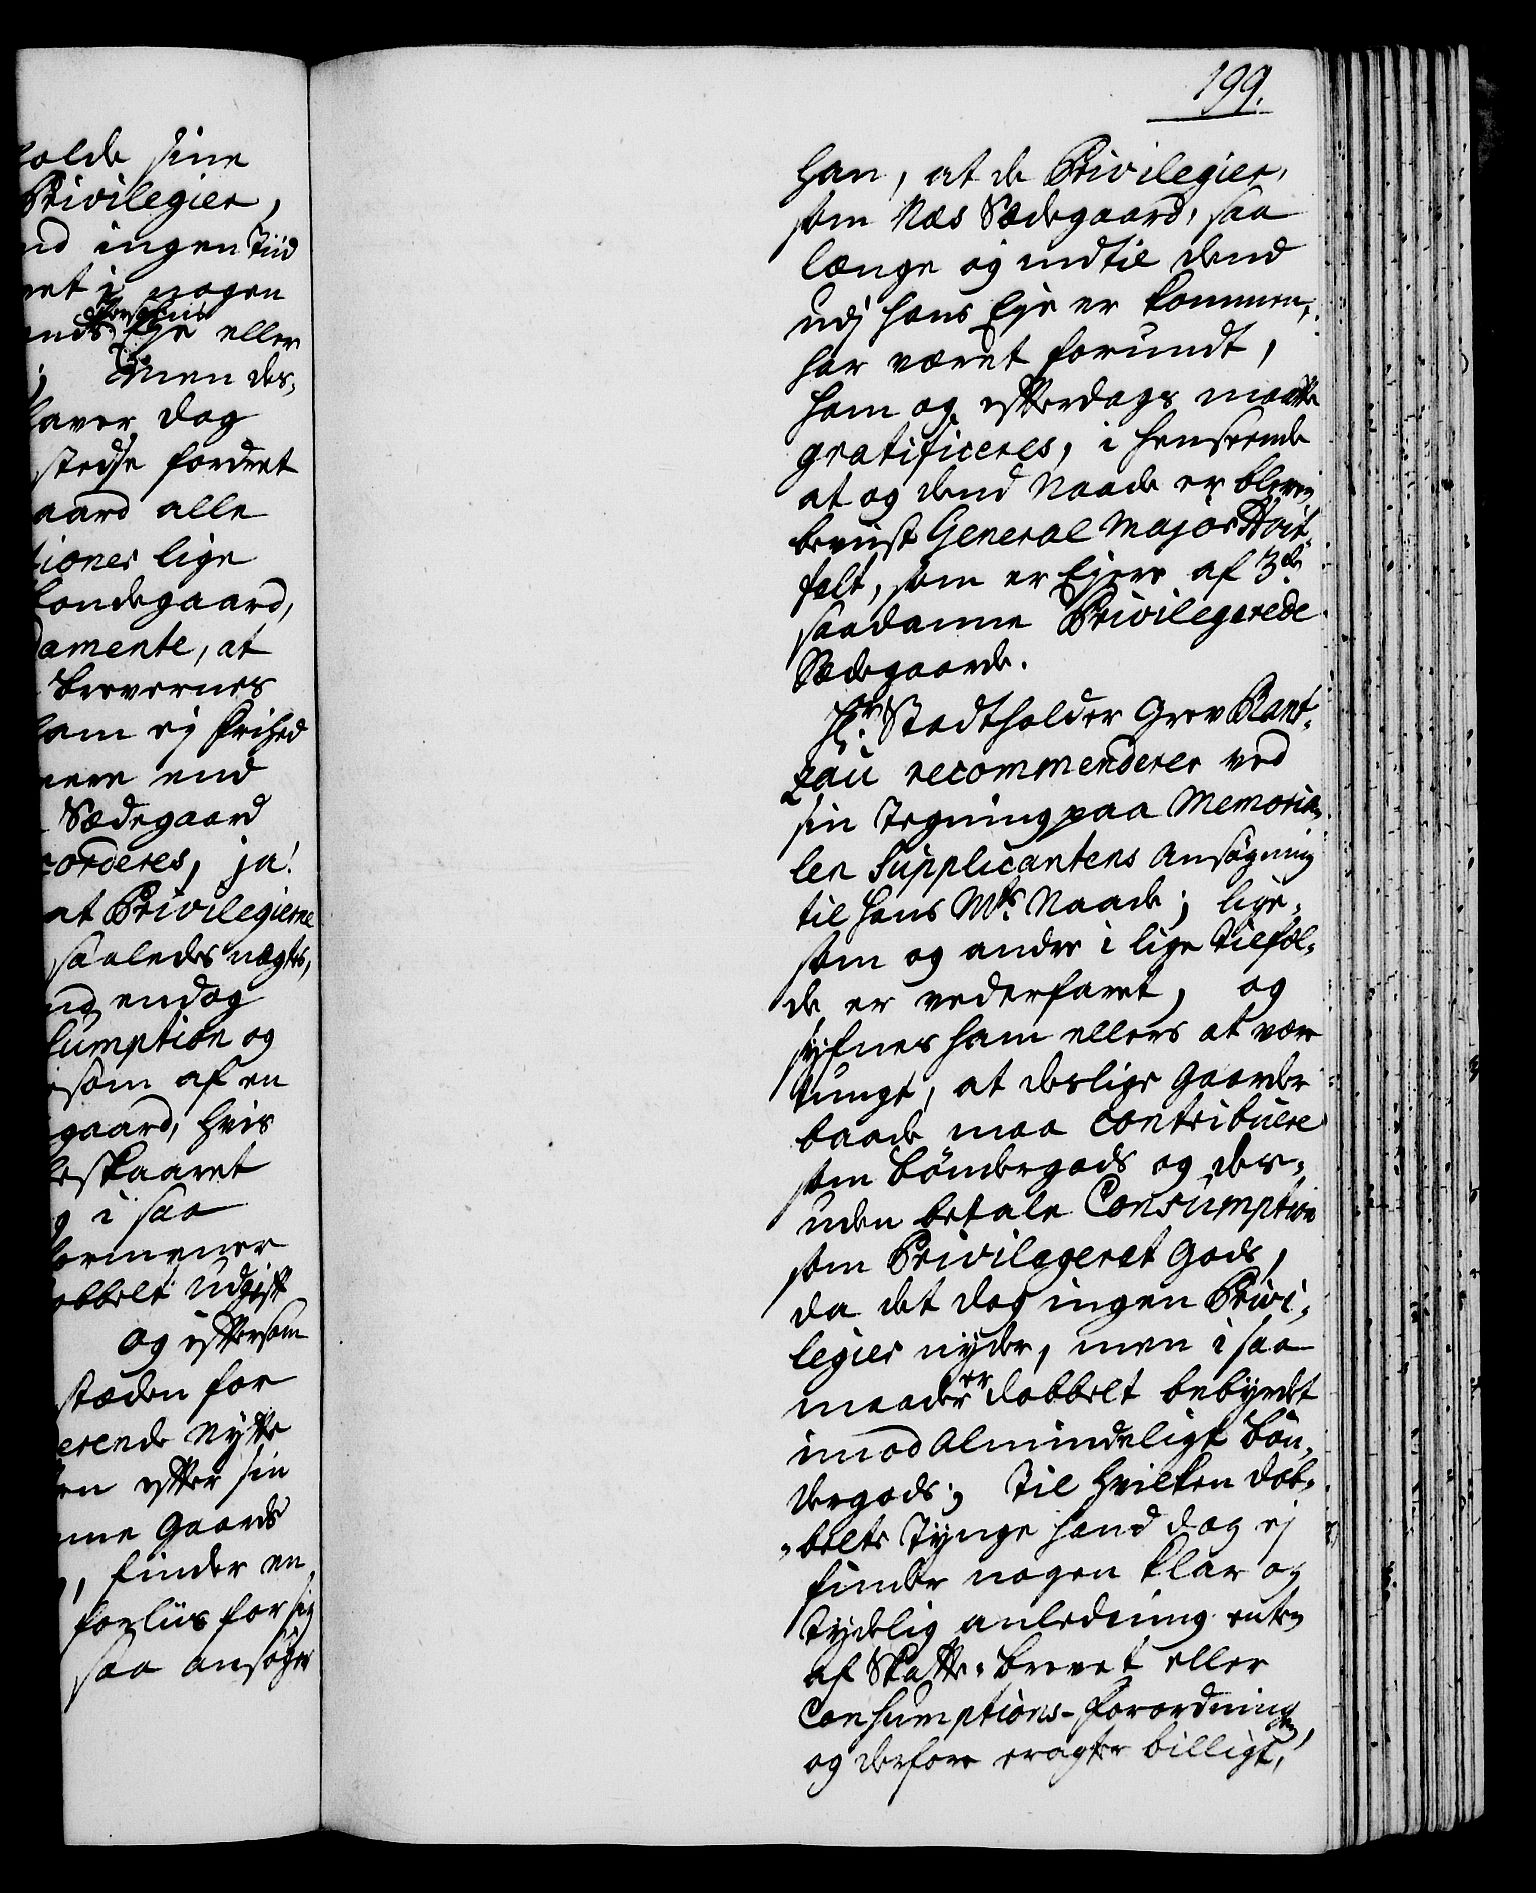 holde sine
Privilegier,
nd ingen Tiid
ret i nogen
Persohns
ands Eye eller
; Men des-
haver dog
stedse fordret
aard alle
tioner lige
bondegaard,
damente, at
brevernes
ham ej frihed
mere end
Sædegaard
corderes, ja!
at Privilegierne
saaledes nægtes,
nd endog
sumption og
som af en
gaard, hvis
beskaaret
g i saa
formener
obbelt udgift
og efftersom
stæden for
erende Nytte
en effter sin
nne Gaards
, finder en
forliis for sig
saa ansøger
199.
han, at de Privilegier,
som Næs Sædegaard, saa
længe og indtil dend
udj hans Eje er kommen,
har været forundt,
ham og effterdags maatte
gratificeres, i henseende
at og dend Naade er bleven
beviist General Major Hvit-
felt, som er Ejere af 3de
saadanne Privilegerede
Sædegaarde.
Hr. Stadtholder Grev Rant-
zau recommenderer ved
sin Tegning paa Memoria-
len Supplicantens Ansøgning
til Hans Mts. Naade; lige-
som og andre i lige Tilfæl-
de er vederfaret, og
syfnes ham ellers at være
tungt, at deslige Gaarder
baade maa contribuere
som bøndergods og des-
uden betale Consumption
som Privilegeret Gods,
da det dog ingen Privi-
legier nyder, men i saa
maader er dobbelt bebyrdet
imod Almindeligt bøn-
dergods; Til hvilken dob-
belte Tynge hand dog ej
finder nogen klar og
tydelig anledning enten
af Skatte-brevet eller
Consumptions-Forordningen,
og derfore eragter billigt,